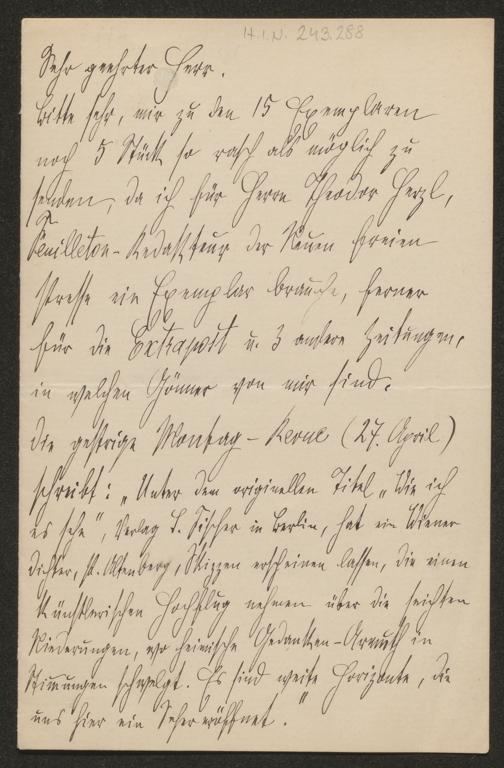 H.I.N. 243.288
Sehr geehrter Herr.
Bitte sehr, mir zu den 15 Exemplaren
noch 5 Stück so rasch als möglich zu
senden, da ich für Herrn Theodor Herzl,
Feuilleton-Redakteur der Neuen Freien
Presse ein Exemplar brauche, ferner
für die Extrapost u. 3 andere Zeitungen,
in welchen Gönner von mir sind.
Die gestrige Montag-Revue (27. April)
schreibt: „Unter dem originellen Titel „Wie ich
es sehe", Verlag S. Fischer in Berlin, hat ein Wiener
Dichter, P. Altenberg, Skizzen erscheinen lassen, die einen
künstlerischen Hochflug nehmen über die seichten
Niederungen, wo heimische Gedanken-Armuth in
Stimmungen schwelgt. Es sind weite Horizonte, die
uns hier ein Seher eröffnet."